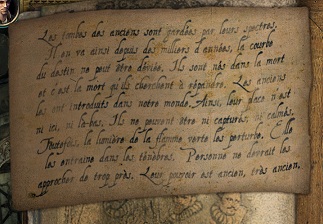 Les tombes des anciens sont gardées par leurs spectres.
Il en va ainsi depuis des milliers d'années, la courbe
du destin ne peut être déviée. Ils sont nés dans la mort
et c'est la mort qu'ils cherchent à répandre. Les anciens
les ont introduits dans notre monde. Ainsi, leur place n'est
ni ici, ni là-bas. Ils ne peuvent être ni capturés, ni calmés.
Toutefois, la lumière de la flamme verte les perturbe. Elle
les entraîne dans les ténèbres. Personne ne devrait les
approcher de trop près. Leur pouvoir est ancien, très ancien.